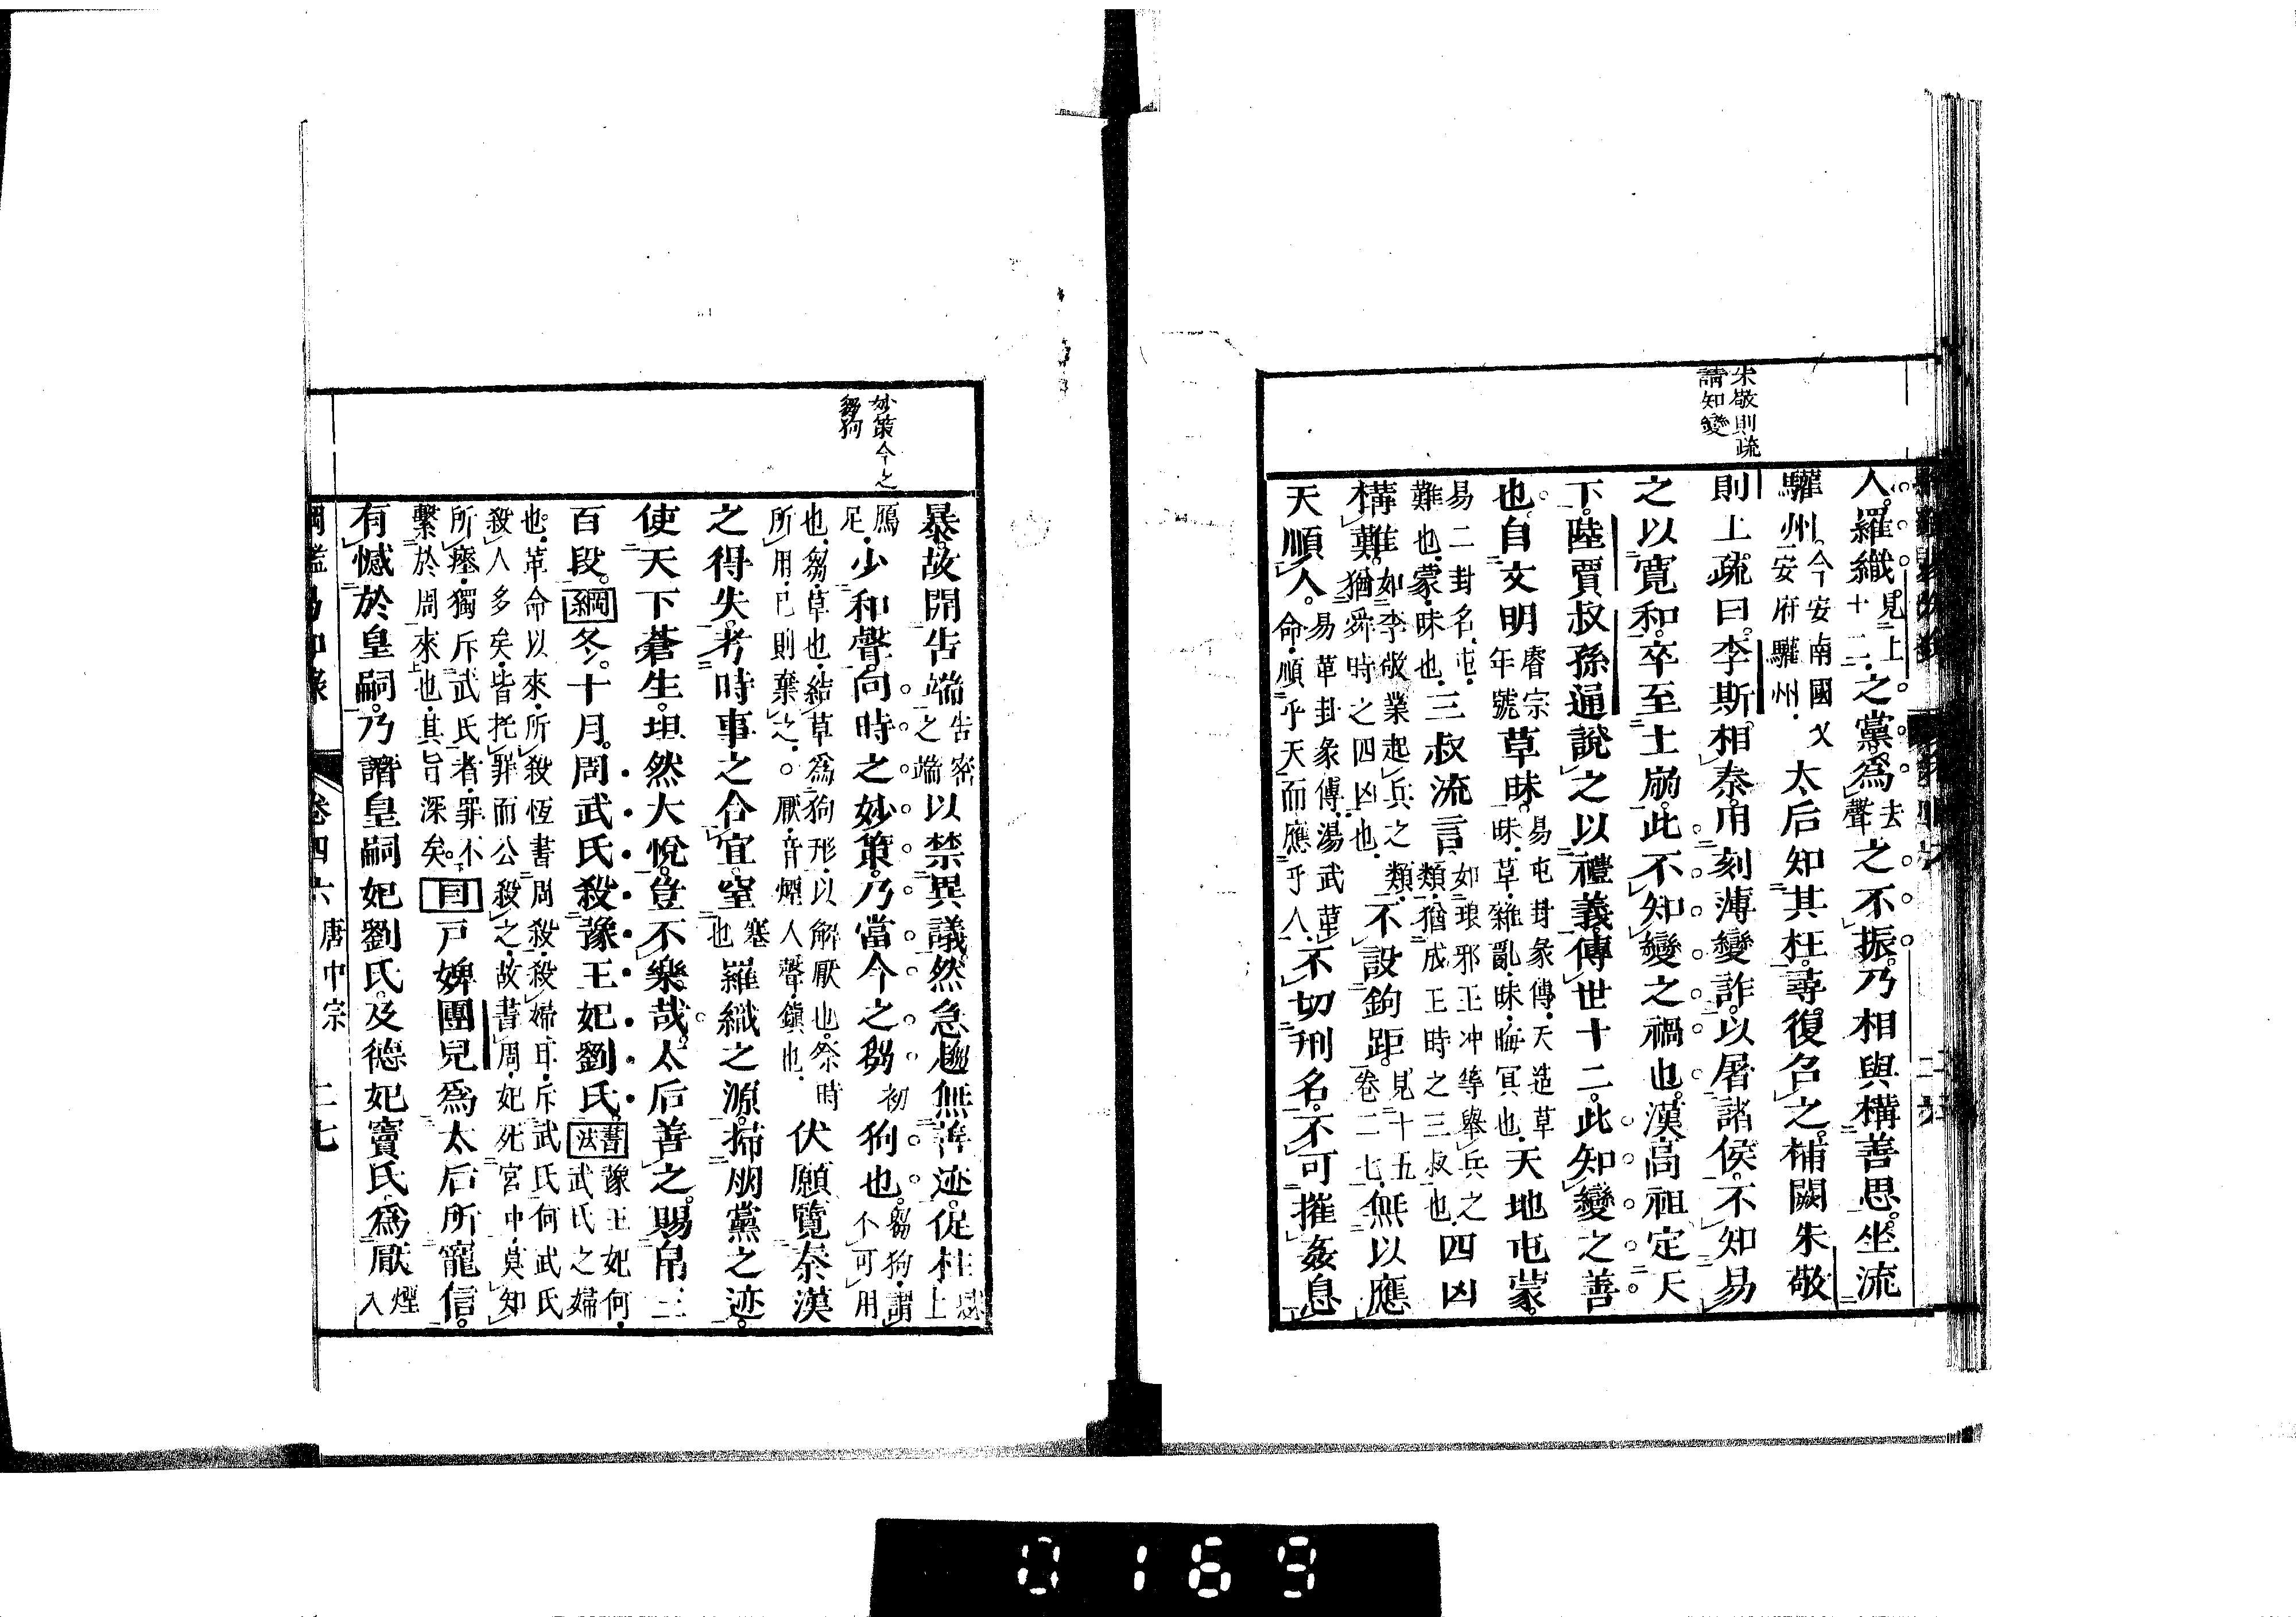 朱敬則疏
請知變
人羅織見上十二之黨爲去聲之不振乃相與構善思坐流
驩州今安南國乂安府驩州太后知其枉尋復召之補闕朱敬
則上疏曰李斯相秦用刻薄變詐以屠諸侯不知易
之以寬和卒至土崩此不知變之禍也漢高祖定天
下陸賈叔孫通說之以禮義傳世十二此知變之善
也自文明睿宗年號草昧易屯卦彖傳天造草昧草雜亂昧晦冥也天地屯蒙
易二卦名屯難也蒙昧也三叔流言如琅邪王冲等舉兵之類猶成王時之三叔也四凶
構難如李敬業起兵之類猶舜時之四凶也不設鉤距見十五卷二七無以應
天順人易革卦彖傳湯武革命順乎天而應乎人不切刑名不可摧姦息
妙策今之
芻狗
暴故開告端告密之端以禁異議然急趨無善迹促柱上
足少和聲向時之妙策乃當今之芻初狗也芻狗謂不可用
也芻草也結草爲狗形以解厭也祭時所用已則棄之厭音煙人聲鎮也伏願覽秦漢
之得失考時事之合宜窒塞也羅織之源掃朋黨之迹
使天下蒼生坦然大悅豈不樂哉太后善之賜帛三
百段綱冬十月周武氏殺豫王妃劉氏書法豫王妃何武氏之婦
也革命以來所殺恆書周殺殺婦耳斥武氏何武氏殺人多矣皆托罪而公殺之故書周妃死宮中莫知
所瘞獨斥武氏者罪不繫於周來也其旨深矣目戶婢團兒爲太后所寵信
有憾於皇嗣乃譖皇嗣妃劉氏及德妃竇氏爲厭煙入
綱鑑易知錄 卷四六 唐中宗 二七